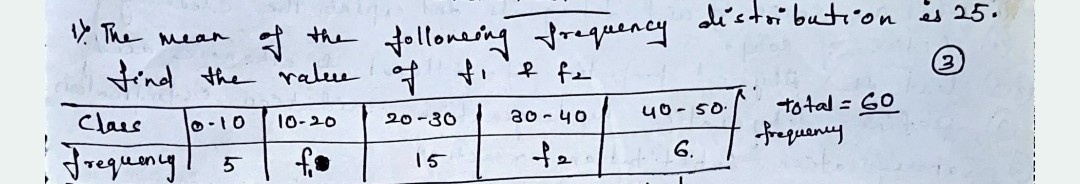 1) The mean of the following frequency distribution is 25.
find the value of f1 & f2
(3)
Class 0-10 10-20 20-30 30-40 40-50. total = 60
frequency 5 f1 15 f2 6. frequency